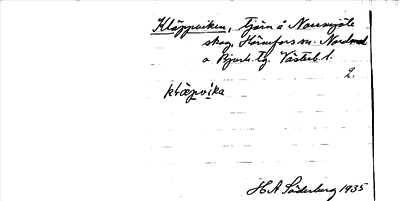 Kläppviken, tjärn å Norrmjöle
skog, Hörnefors sn. Nordmal.
o Bjurh. tg. Västerb. l.
2.
kläpvika
H A Söderberg 1935